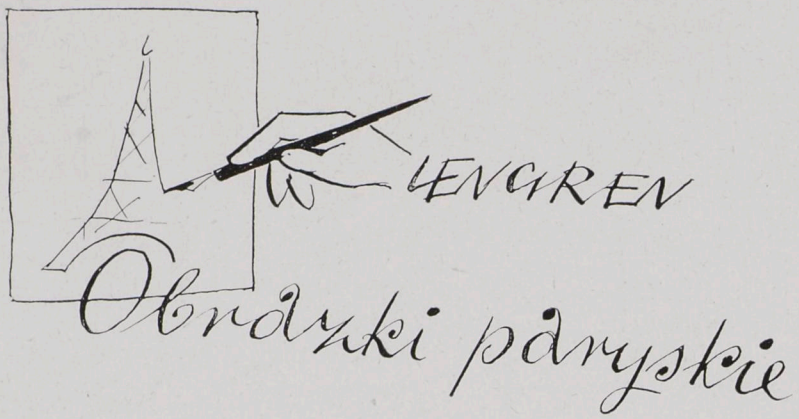 LENGREN
Obrazki paryskie